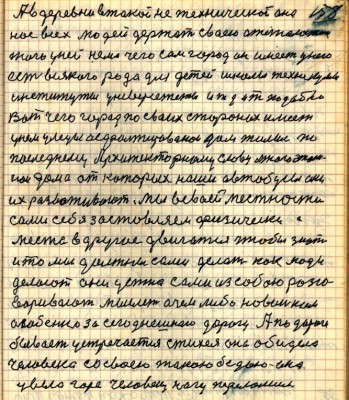 А в деревни в такой не технической она
нас всех людей держат своего
этого у ней нема чего сам город он имеет у него
ест всякого рода для детей школы техникумы
институты университеты и т д от подобно
Вот чего город по своих сторонах имеет
унем улицы асфалтированои дом жилые по
последнему Архитекторному слову много
дома от которых наши автобусы они
их развотивают. Мы всвоей местности
сами себя заставляем физически с
места в другое двигатся чтобы знать
и то мы должны сами делат как люди
делают они утна сами из собою розго
варивают мыслят о чем либо новым
особенно за сегоднешною дорогу А по дороги
бывает устречается стихея она обидела
человека со своею такою бедою она
увела горе человеку ногу